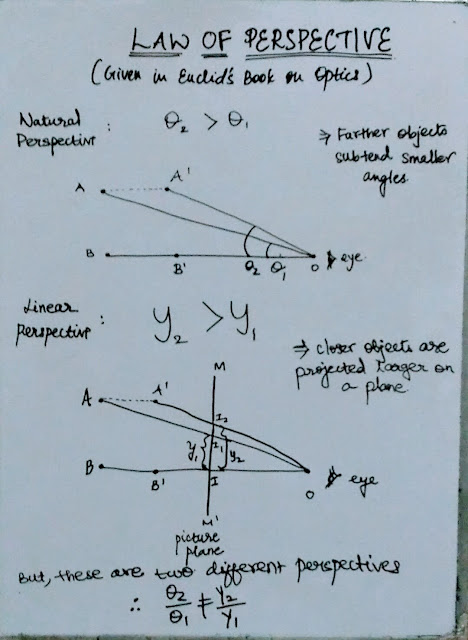 LAW OF PERSPECTIVE
(Given in Euclid's Book on Optics)
Natural Perspective : θ₂ > θ₁
⇒ Farther objects
subtend smaller
angles
A A'
B B' θ₂ θ₁ O eye
Linear Perspective : y₂ > y₁
⇒ closer objects are
projected larger on
a plane
M
A A' I₂
y₁ I₁ y₂
B B' I O eye
M'
picture
plane
But, these are two different perspectives
∴ θ₂/θ₁ ≠ y₂/y₁